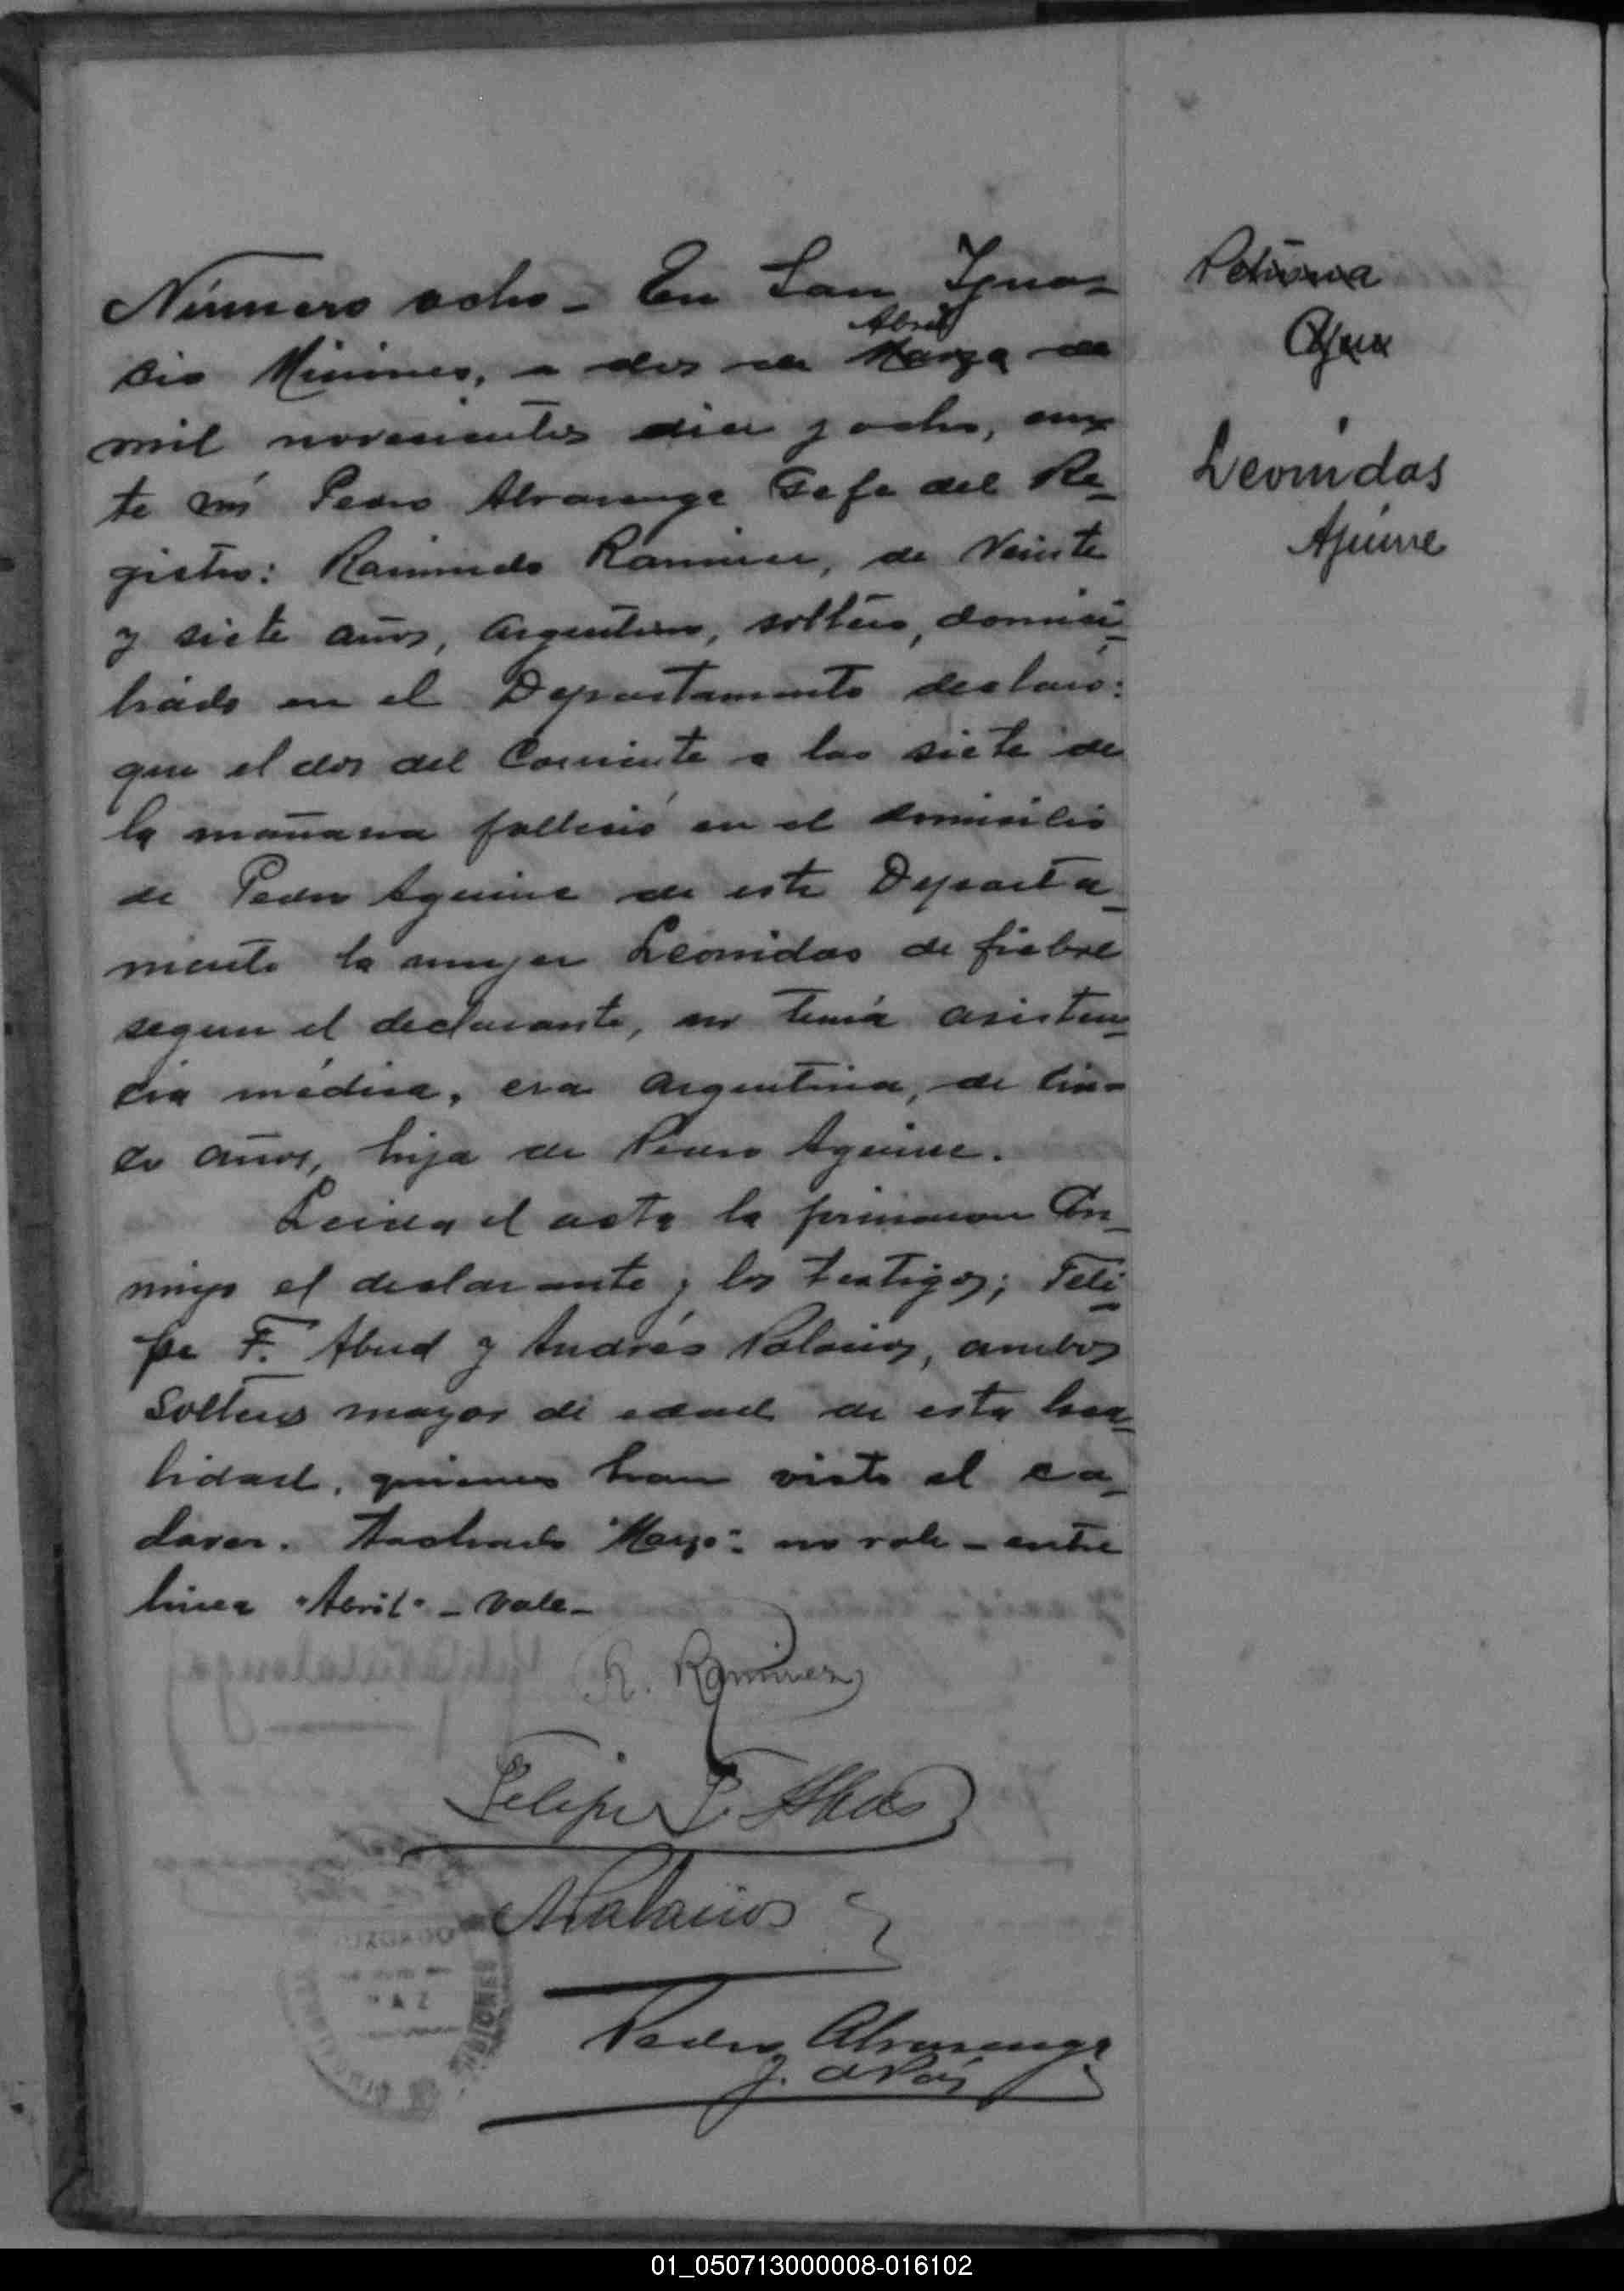 Número ocho - En San Igna-
Abril
cio Misiones, a dos de Marzo de
mil novecientos diez y ocho, an-
te mí Pedro Alvarenga Gefe del Re-
gistro: Raimundo Ramirez, de Veinte
y siete años, Argentino, soltero, domici-
liado en el Departamento declaró:
que el dos del Corriente a las siete de
la mañana falleció en el domicilio
de Pedro Aguirre de este Departa-
mento la mujer Leonidas de fiebre
segun el declarante, no tenía asisten-
cia médica, era Argentina, de cin-
co años, hija de Pedro Aguirre.
Leida el acta la firmaron Con-
migo el declarante y los testigos; Feli-
pe F. Abud y Andrés Palacios, ambos
Solteros mayor de edad de esta loca-
lidad, quienes han visto el ca-
daver. Tachado "Marzo": no vale - entre
linea "Abril" - Vale -
R. Ramirez
Felipe F. Abud
A Palacios
Pedro Alvarenga
J. de Paz
Petrona
Leonidas
Aguirre
PAZ
MISIONES
01_050713000008-016102